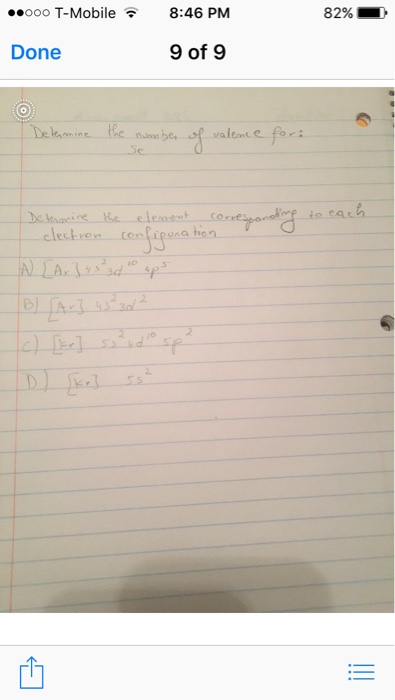 T-Mobile 8:46 PM 82%
Done 9 of 9
Determine the number of valence for:
Se
Determine the element corresponding to each
electron configuration
A) [Ar] 4s² 3d¹⁰ 4p⁵
B) [Ar] 4s² 3d²
C) [Kr] 5s² 4d¹⁰ 5p²
D.) [Kr] 5s²